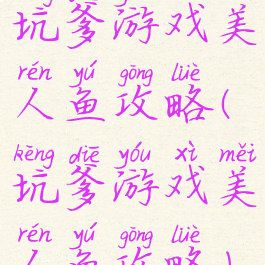 坑爹游戏美
rén yú gōng lüè
人鱼攻略(
kēng diē yóu xì měi
坑爹游戏美
rén yú gōng lüè
人鱼攻略)